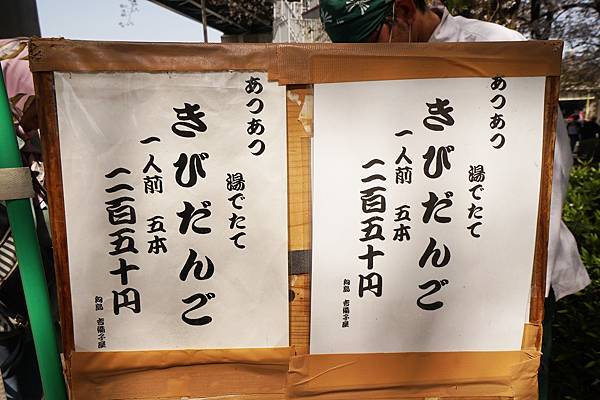 あつあつ
湯でたて
きびだんご
一人前 五本
二百五十円
向島 吉備子屋
あつあつ
湯でたて
きびだんご
一人前 五本
二百五十円
向島 吉備子屋